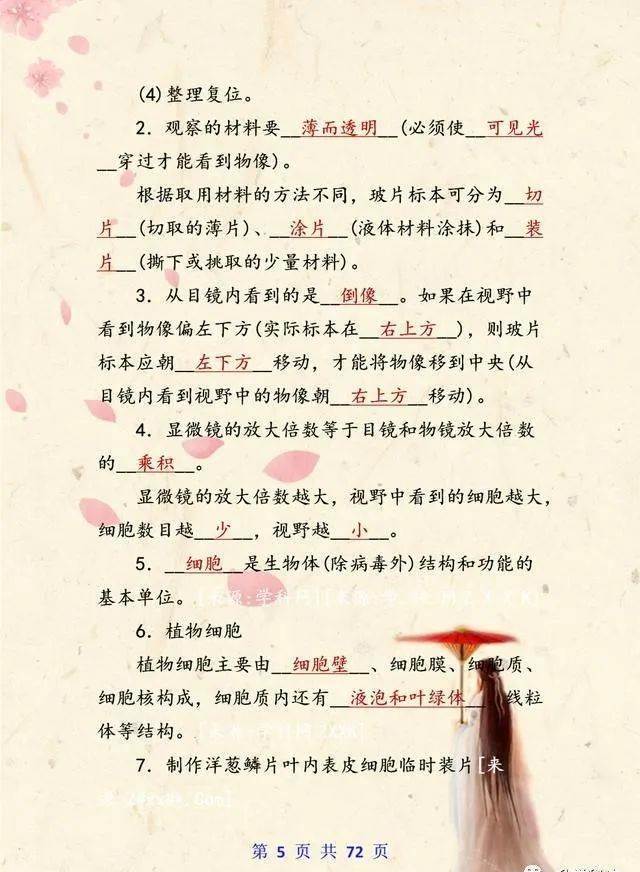 (4)整理复位。
2．观察的材料要__薄而透明__(必须使__可见光
__穿过才能看到物像)。
根据取用材料的方法不同，玻片标本可分为__切
片__(切取的薄片)、__涂片__(液体材料涂抹)和__装
片__(撕下或挑取的少量材料)。
3．从目镜内看到的是__倒像__。如果在视野中
看到物像偏左下方(实际标本在__右上方__)，则玻片
标本应朝__左下方__移动，才能将物像移到中央(从
目镜内看到视野中的物像朝__右上方__移动)。
4．显微镜的放大倍数等于目镜和物镜放大倍数
的__乘积__。
显微镜的放大倍数越大，视野中看到的细胞越大，
细胞数目越__少__，视野越__小__。
5．__细胞__是生物体(除病毒外)结构和功能的
基本单位。[来源:学科网]
6．植物细胞
植物细胞主要由__细胞壁__、细胞膜、细胞质、
细胞核构成，细胞质内还有__液泡和叶绿体__ 线粒
体等结构。[来源:学科网ZXXK]
7．制作洋葱鳞片叶内表皮细胞临时装片[来
第 5 页 共 72 页